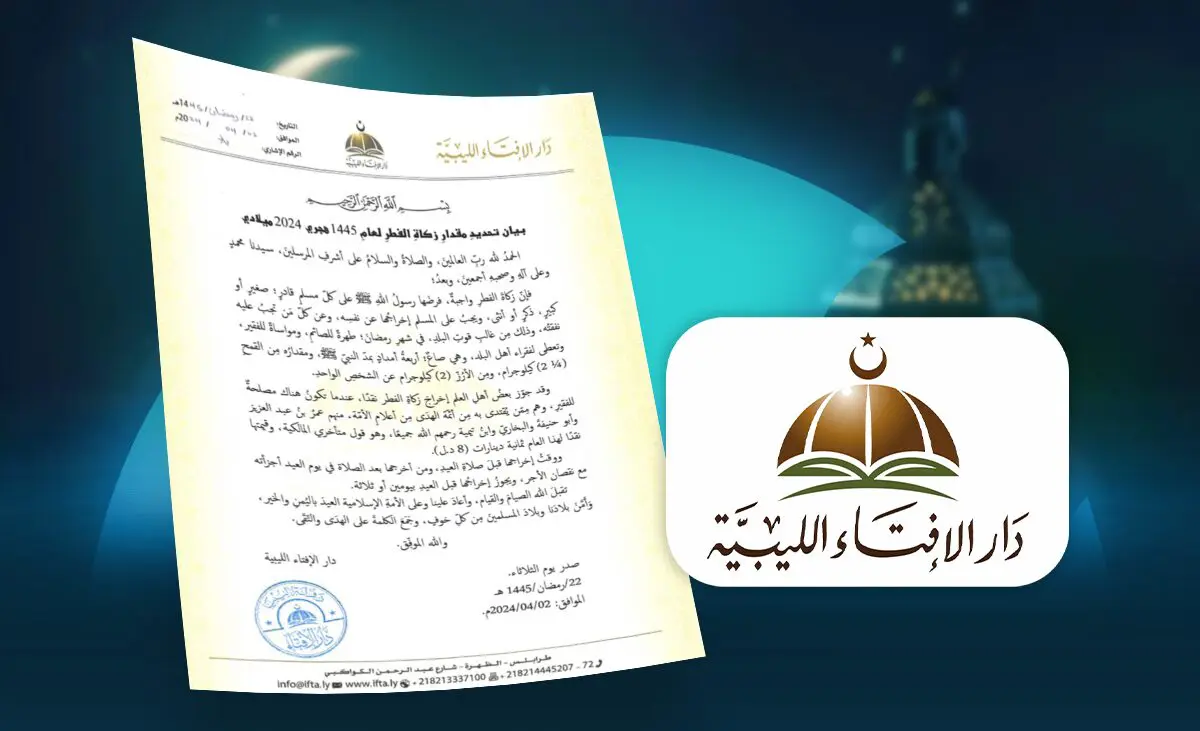 دَار الإفتَاء الليبيَّة
دار الإفتاء الليبية
التاريخ: 22/رمضان/1445هـ
الموافق: 02/04/2024م
الرقم الإشاري:
بِسْمِ اللَّهِ الرَّحْمَنِ الرَّحِيمِ
بيان تحديد مقدارِ زكاةِ الفطرِ لعام 1445 هجري 2024 ميلادي
الحمدُ لله ربّ العالمين، والصلاةُ والسلامُ على أشرفِ المرسلين، سيدنا محمدٍ
وعلى آلهِ وصحبهِ أجمعين، وبعدُ؛
فإنّ زكاةَ الفطرِ واجبةٌ، فرضَها رسولُ اللهِ ﷺ على كلّ مسلمٍ قادرٍ؛ صغيرٍ أو
كبيرٍ، ذكرٍ أو أنثى، ويجبُ على المسلم إخراجُها عن نفسِه، وعن كلّ مَن تجبُ عليه
نفقتُه، وذلك مِن غالبِ قوتِ البلدِ، في شهرِ رمضانَ؛ طهرةً للصائمِ، ومواساةً للفقيرِ،
وتعطى لفقراء أهل البلد، وهي صاعٌ؛ أربعةُ أمدادٍ بمدّ النبيّ ﷺ، ومقدارُه مِن القمحِ
(2 ¼) كيلوجرام، ومِن الأرُزّ (2) كيلوجرام عن الشخصِ الواحدِ.
وقد جوّز بعضُ أهلِ العلمِ إخراجَ زكاةِ الفطر نقدًا، عندما تكونُ هناك مصلحةٌ
للفقيرِ، وهم مِمّن يُقتدى به مِن أئمّة الهدَى مِن أعلامِ الأمّة، منهم عمرُ بنُ عبد العزيز
وأبو حنيفةَ والبخاريّ وابنُ تيمية رحمهم الله جميعًا، وهو قول متأخري المالكية، وقيمتها
نقدًا لهذا العام ثمانية دينارات (8 د.ل).
ووقتُ إخراجِها قبلَ صلاةِ العيدِ، ومن أخرجها بعد الصلاة في يوم العيد أجزأته
مع نقصان الأجر، ويجوزُ إخراجُها قبلَ العيدِ بيومين أو ثلاثة.
تقبلَ الله الصيامَ والقيامَ، وأعادَ علينا وعلى الأمةِ الإسلاميةِ العيدَ باليُمنِ والخيرِ،
وأمّنَ بلادَنا وبلادَ المسلمينَ مِن كلّ خوفٍ، وجمَعَ الكلمةَ على الهدَى والتّقَى.
والله الموفّق.
دار الإفتاء الليبية
صدر يوم الثلاثاء.
22/رمضان/1445 هـ
الموافق: 2024/04/02م.
دار الإفتاء
طرابلس - الظهرة - شارع عبد الرحمن الكواكبي
info@ifta.ly www.ifta.ly +218213337100 +218214445207 - 72
دَار الإفتَاء الليبيَّة